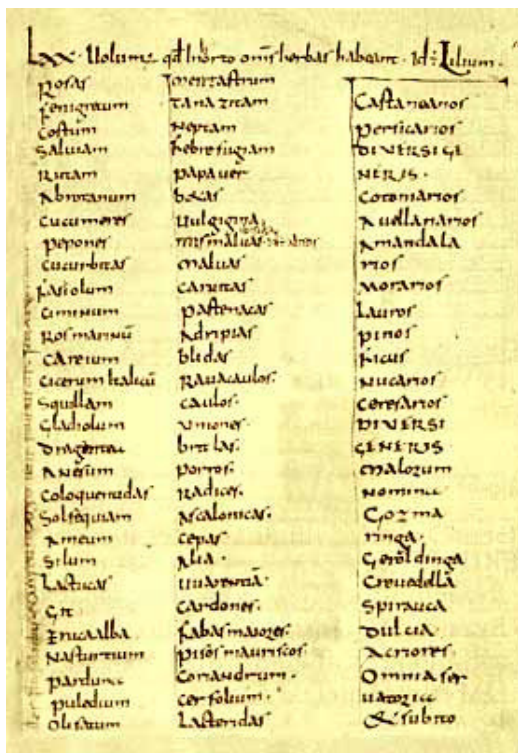 LXX. Uolumus qd in horto omnes herbas habeant. Id est Lilium.
Rosas
fenigrecum
Costum
Saluiam
Rutam
Abrotanum
Cucumeres
pepones
Cucurbitas
fasiolum
Ciminum
Ros marinū
Careium
Cicerum Italicū
Squillam
Gladiolum
Dragantea
Anesum
Coloquentidas
Solsequiam
Ameum
Silum
Lactucas
Git
Eruca alba
Nasturtium
parduna
puledium
Olisatum
mentastrum
tanazitam
Neptam
febrefugiam
papauer
betas
Uulgigina
mismaluas
Maluas
Caruitas
pastenacas
Adripias
blidas
Rauacaulos.
Caulos.
Uniones.
britlas.
porros.
Radices.
Ascalonicas.
Cepas.
Alia.
Uuarentiā.
Cardones.
fabas maiores.
pisos mauriscos
Coriandrum.
Cerfolium.
Lacteridas
Castanearios
persicarios
DIVERSI GE
NERIS.
Cotoniarios
Auellanarios
Amandala
rios
Morarios
Lauros
pinos
ficus
Nucarios
Ceresarios
DIVERSI
GENERIS.
Malorum
nomina
Gozma
ringa.
Geroldinga
Creuedella
Spirauca
Dulcia
Acriores.
Omnia ser
uatoria
Et subito